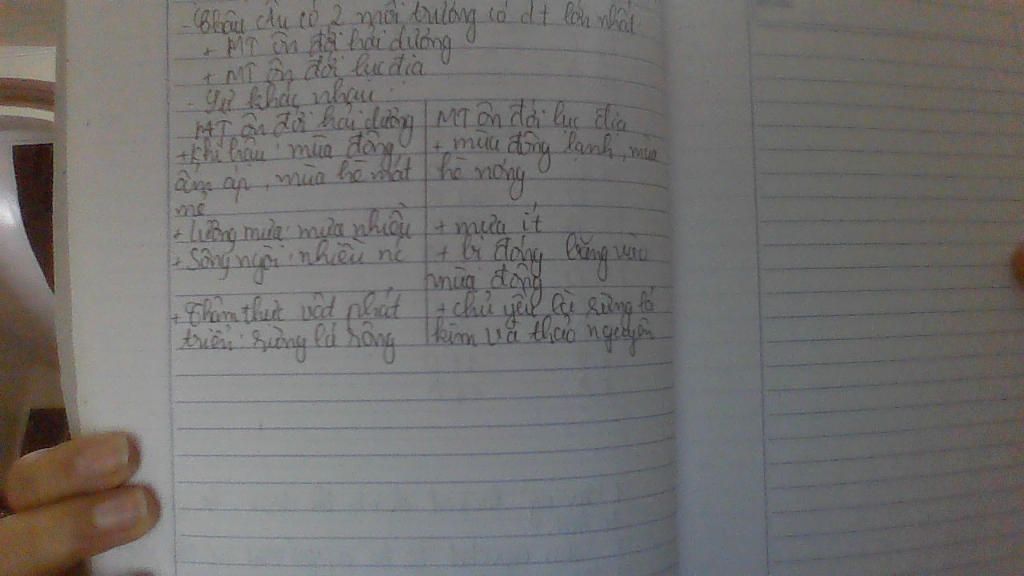 - Châu Âu có 2 môi trường có dt lớn nhất
+ MT ôn đới hải dương
+ MT ôn đới lục địa
- Sự khác nhau:
MT ôn đới hải dương
+ Khí hậu: mùa đông
ấm áp, mùa hè mát
mẻ
+ Lượng mưa: mưa nhiều
+ Sông ngòi: nhiều nc
+ Thảm thực vật phát
triển: rừng lá rộng
MT ôn đới lục địa
+ mùa đông lạnh, mùa
hè nóng
+ mưa ít
+ bị đóng băng vào
mùa đông
+ chủ yếu là rừng lá
kim và thảo nguyên